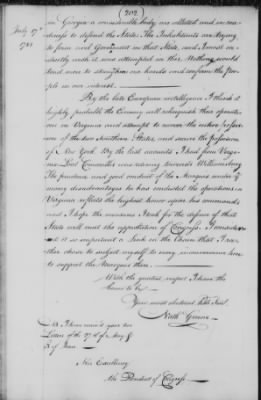 202
July 17th
1781
in Georgia a considerable body are collected and in rea-
diness to defend the State. The Inhabitants are trying
to form civil Government in that State, and I most ar-
dently wish it was attempted in this. Nothing would
tend more to strengthen our hands and confirm the Peo-
ple in our interest.
By the late European intelligence I think it
highly probable the Enemy will relinquish their operati-
ons in Virginia and attempt to secure the entire possess-
ion of the two Southern States, and secure the possession
of New York. By the last accounts I had from Virgi-
nia Lord Cornwallis was retiring towards Williamsburg.
The prudence and good conduct of the Marquis under so
many disadvantages as he has conducted the operations in
Virginia reflects the highest honor upon his command
and I hope the measures I took for the defence of that
State will meet the approbation of Congress. I consider-
ed it so important a Link in the Chain that I ra-
ther chose to subject myself to many inconveniences here
to support the Marquis there.
With the greatest respect I have the
honor to be
Your most obedient hble Serv.
Nath Greene
NB. I have receiv'd your two
Letters of the 27th of May &
of June
His Excellency
the President of Congress